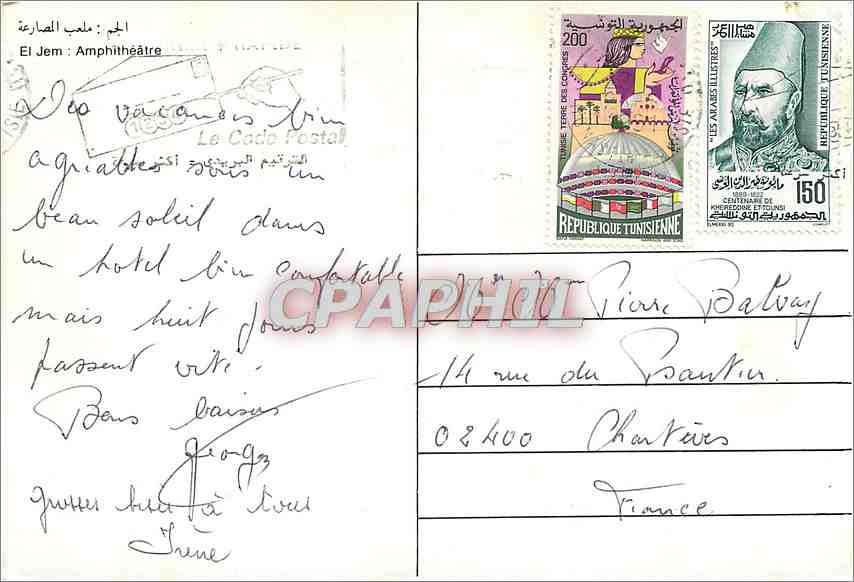 الجم : ملعب المصارعة
El Jem : Amphithéâtre
RAPIDE
Le Code Postal
الترقيم البريدي - أكثر
Des vacances bien
agréables sous un
beau soleil dans
un hotel bien confortable
mais huit jours
passent vite.
Bons baisers
Georges
grosses bises à tous
Irène
الجمهورية التونسية
200
TUNISIE TERRE DES CONGRES
REPUBLIQUE TUNISIENNE
"LES ARABES ILLUSTRES"
REPUBLIQUE TUNISIENNE
150
CENTENAIRE DE
KHEREDDINE ET-TOUNSI
الجمهورية التونسية
CPAPHIL
Pierre
14 rue du
02400
France